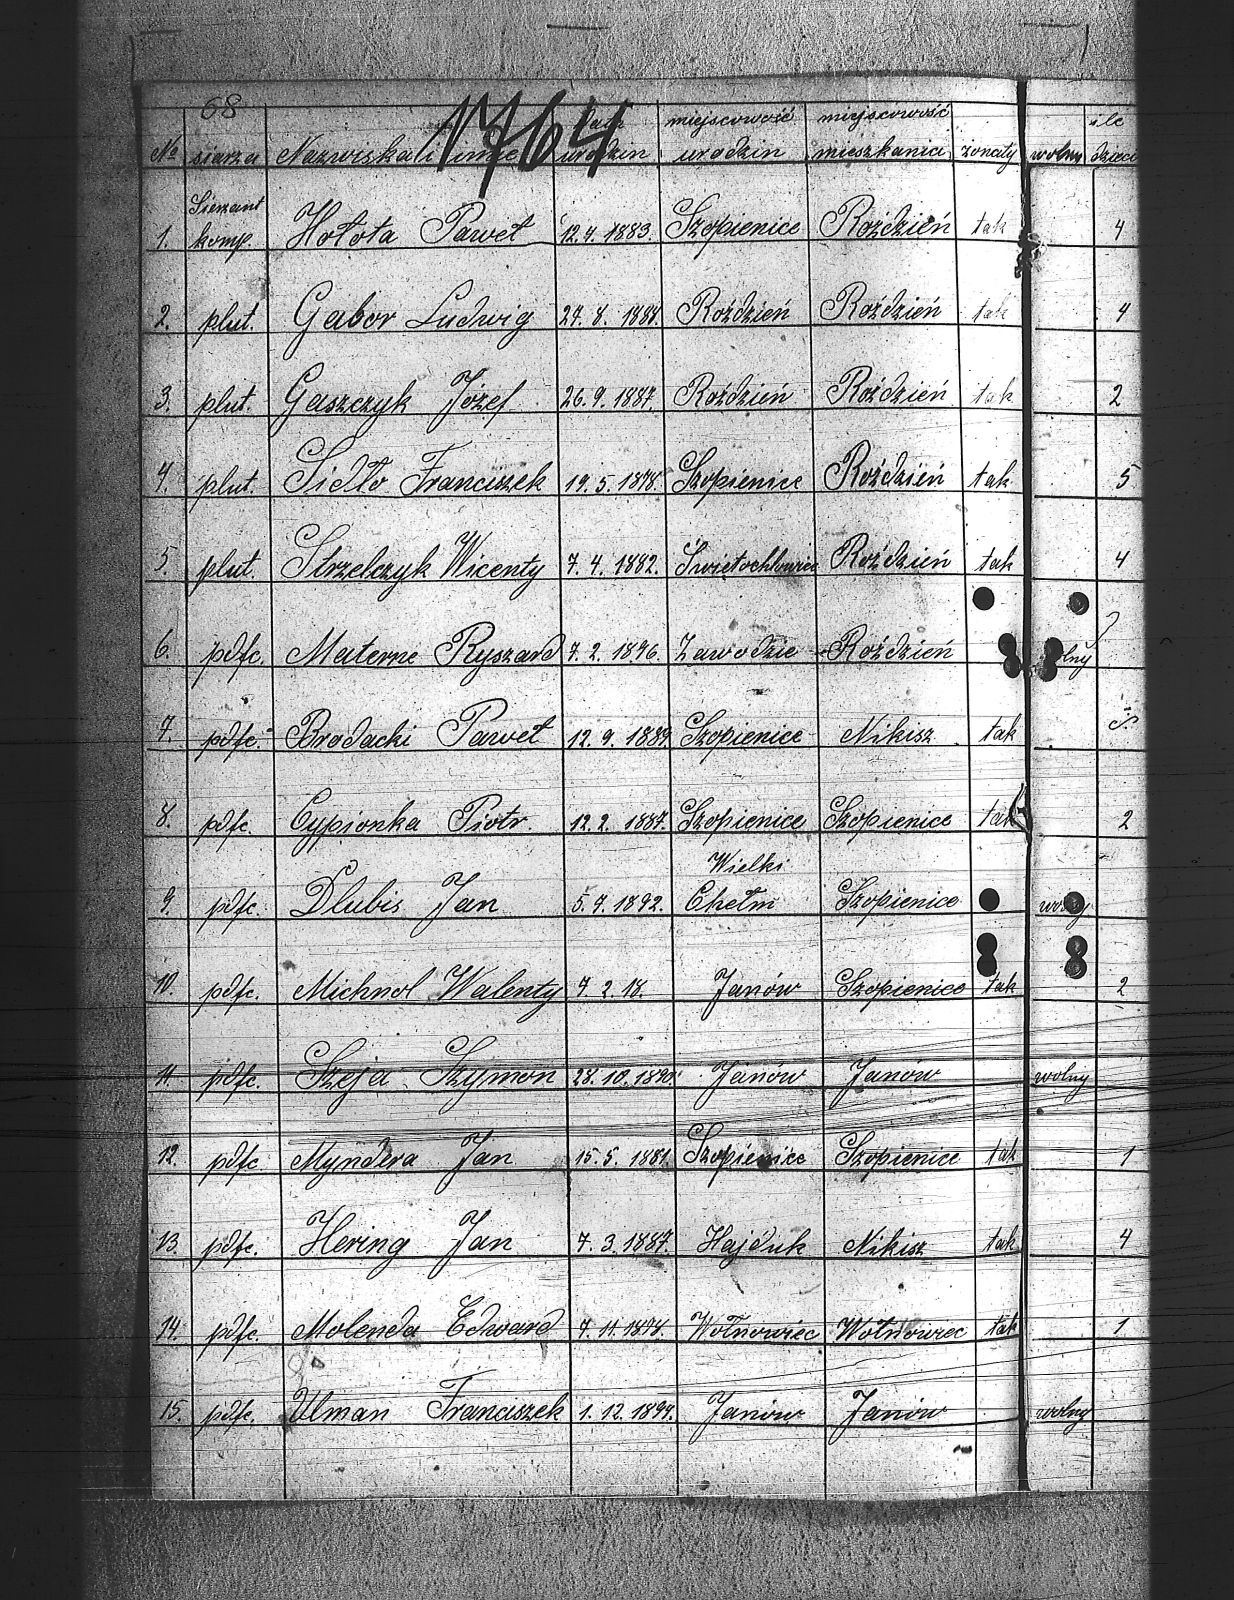 68 1764
№ siarza Nazwiska i imie data urodzin miejscowość urodzin miejscowość mieszkania żonaty wolny ile dzieci
1. Sierzant komp. Hołota Paweł 12.4.1883. Szopienice Roździeń tak 4
2. plut. Gabor Ludwig Roździeń Roździeń tak 4
3. plut. Gaszczyk Józef 26.9.1887. Roździeń Roździeń tak 2
4. plut. Sidło Franciszek 19.5.1878. Szopienice Roździeń tak 5
5. plut. Strzelczyk Wicenty 7.4.1882. Świętochłowiec Roździeń tak 4
6. pdfc. Materne Ryszard 7.2.1896. Zawodzie Roździeń
7. pdfc. Brodacki Paweł 12.9.1889. Szopienice Nikisz tak
8. pdfc. Cypionka Piotr. 12.2.1887. Szopienice Szopienice tak 2
9. pdfc. Dlubis Jan 5.7.1892. Wielki Chełm Szopienice wolny
10. pdfc. Michnol Walenty 7.2.18. Janów Szopienice tak 2
11. pdfc. Szeja Szymon 28.10.1890. Janów Janów wolny
12. pdfc Myndera Jan 15.5.1881. Szopienice Szopienice tak 1
13. pdfc. Hering Jan 7.3.1887. Hajduk Nikisz tak 4
14. pdfc. Molenda Edward 7.11.1878. Wołnowiec Wołnowiec tak 1
15. pdfc. Ulman Franciszek 1.12.1897. Janów Janów wolny